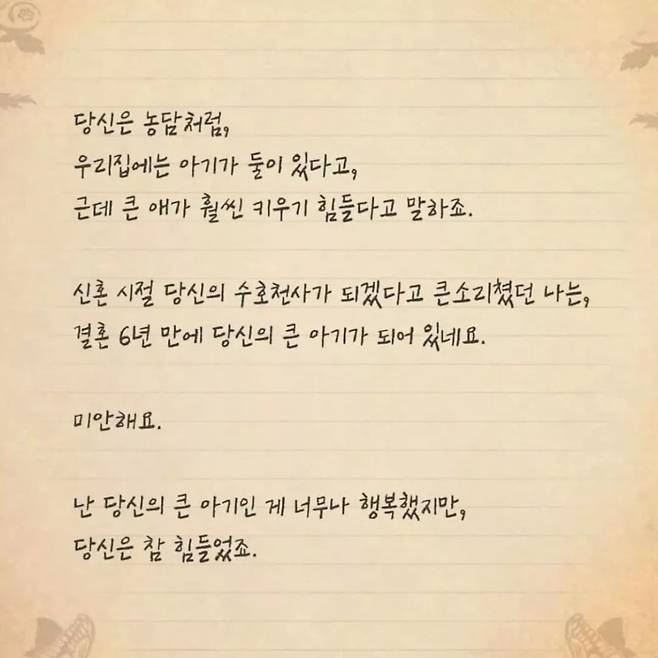 당신은 농담처럼,
우리집에는 아기가 둘이 있다고,
근데 큰 애가 훨씬 키우기 힘들다고 말하죠.
신혼 시절 당신의 수호천사가 되겠다고 큰소리쳤던 나는,
결혼 6년 만에 당신의 큰 아기가 되어 있네요.
미안해요.
난 당신의 큰 아기인 게 너무나 행복했지만,
당신은 참 힘들었죠.